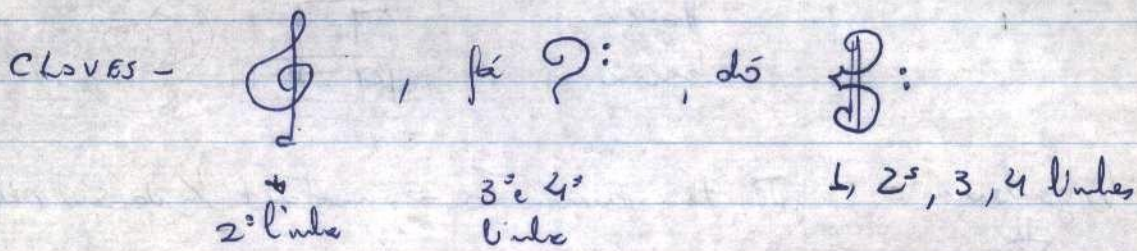 CLAVES - , fá , dó
2ª linha 3ª e 4ª linha 1, 2ª, 3, 4 linhas